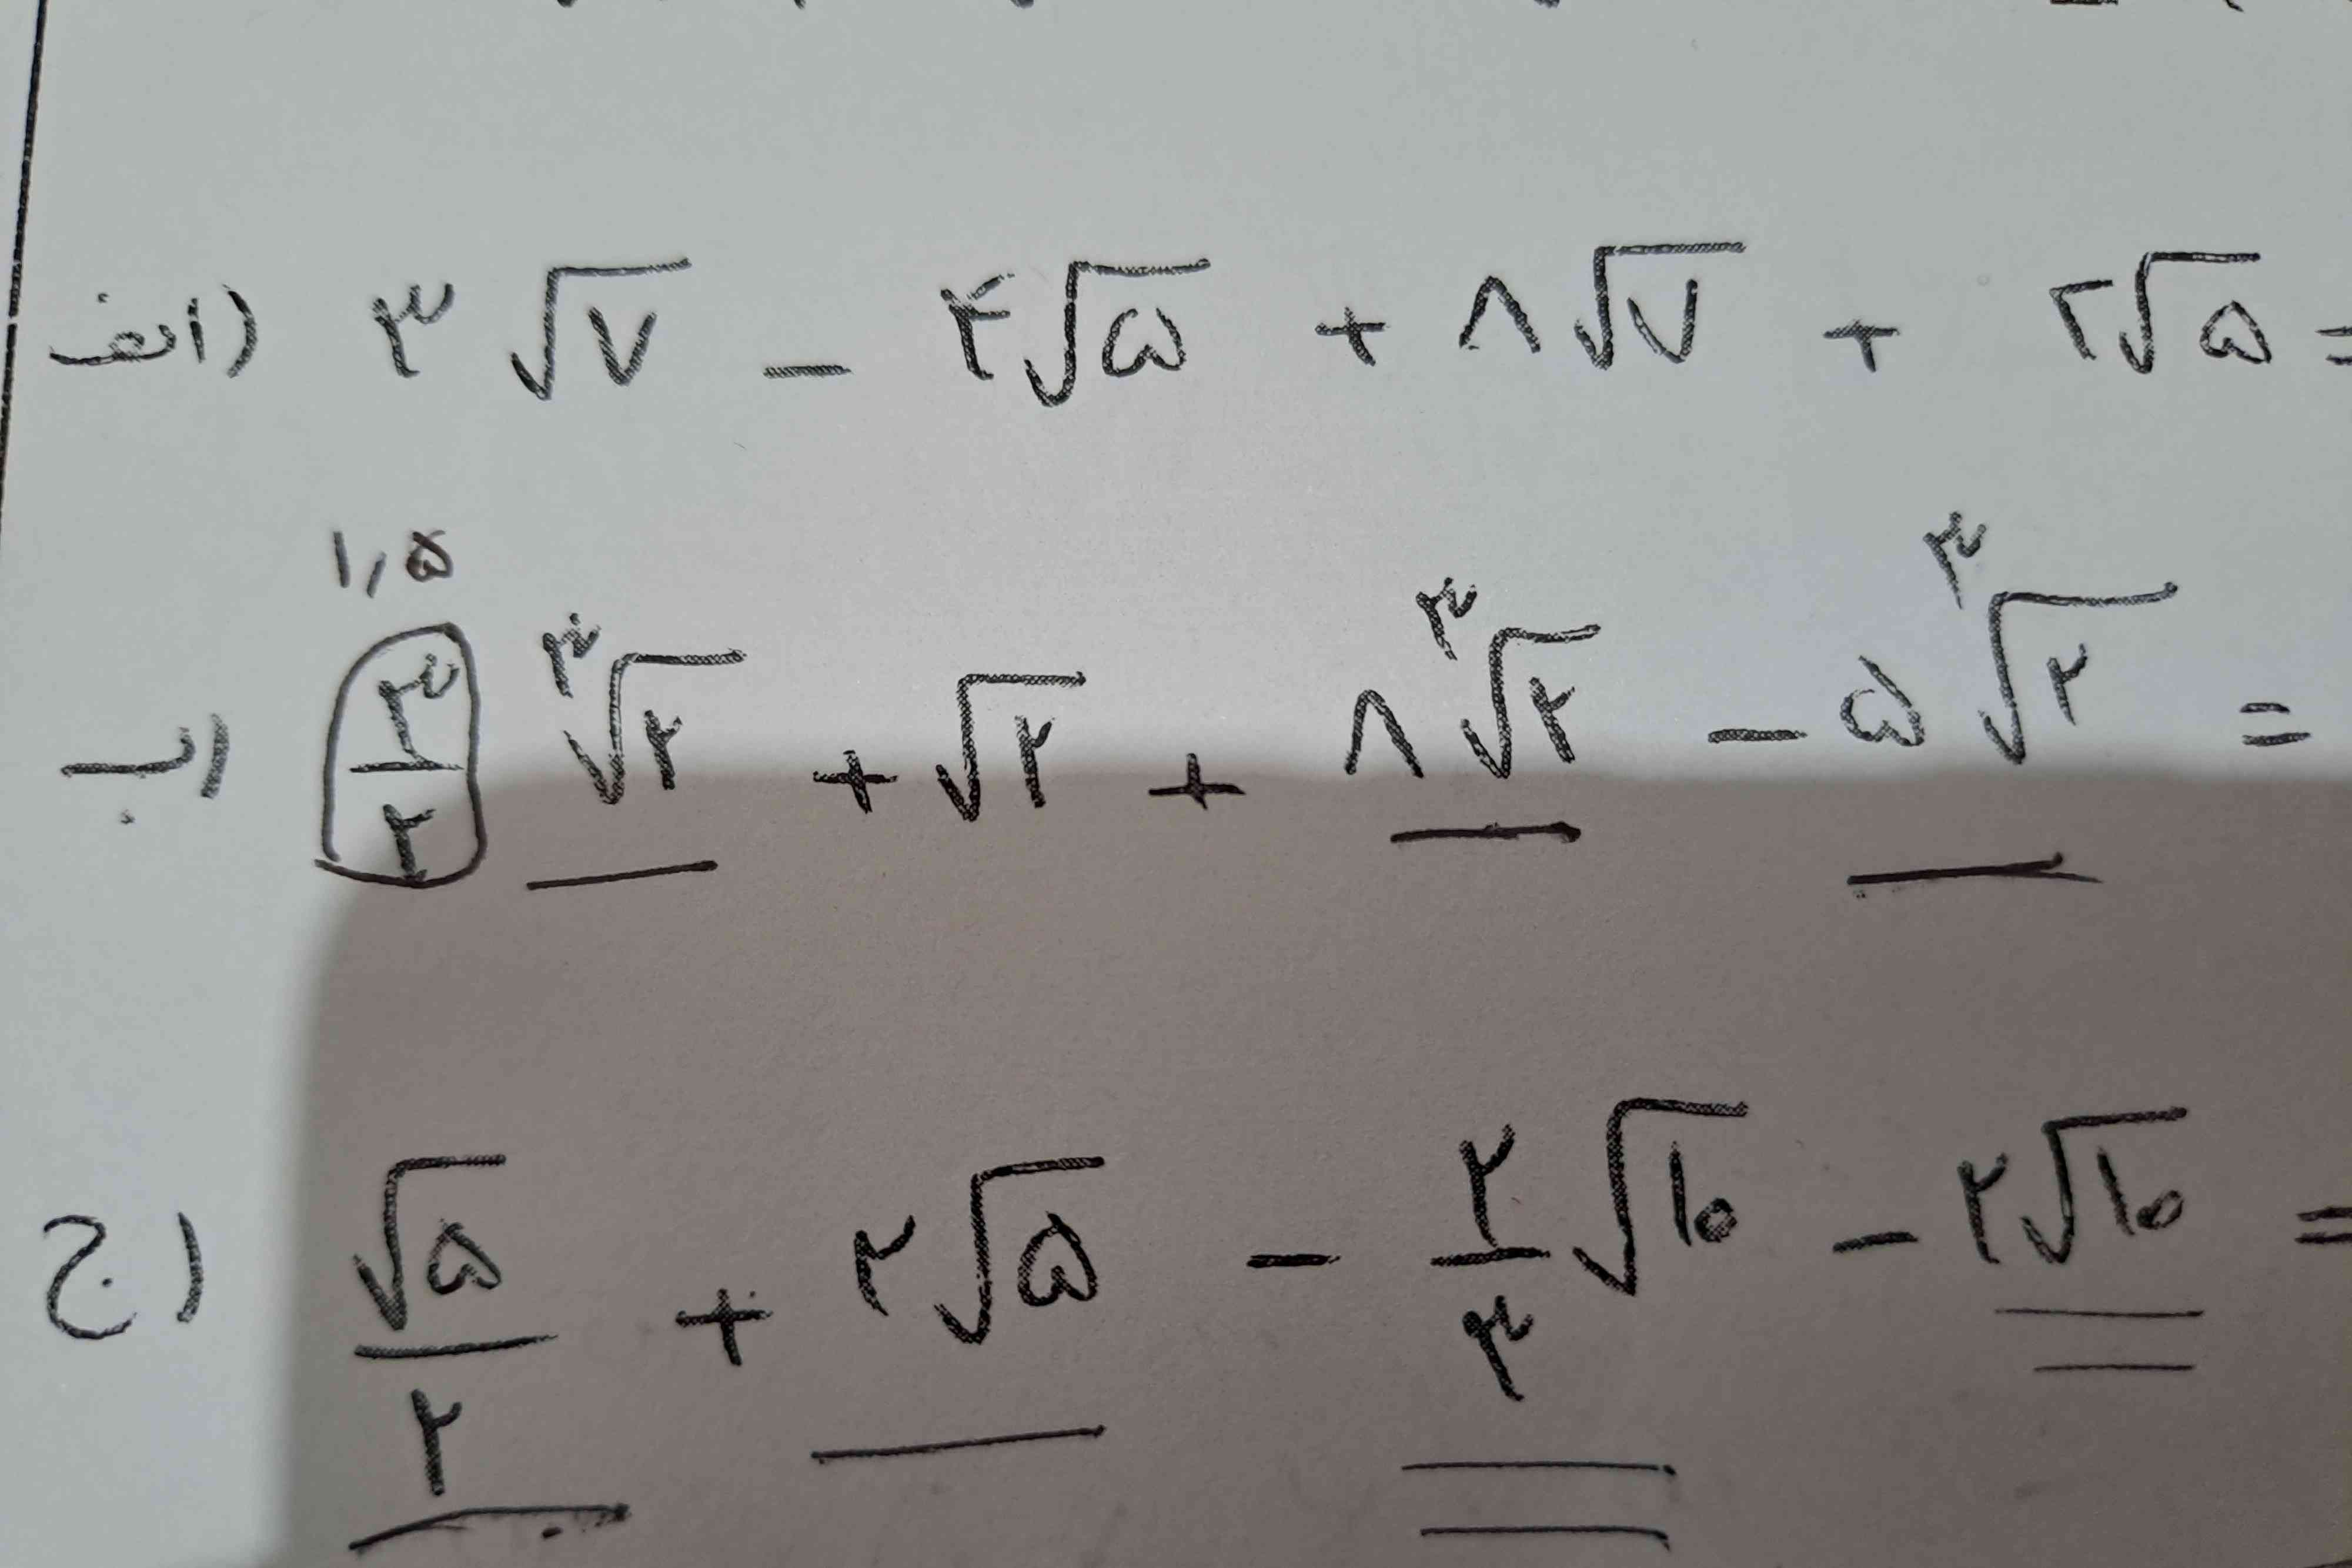 الف) ۳√۷ − ۴√۵ + ۸√۷ + ۲√۵ =
۱٫۵
ب) ۳/۲ ³√۲ + √۲ + ۸ ³√۲ − ۵ ³√۲ =
ج) √۵/۲ + ۲√۵ − ۲/۳ √۱۰ − ۲√۱۰ =